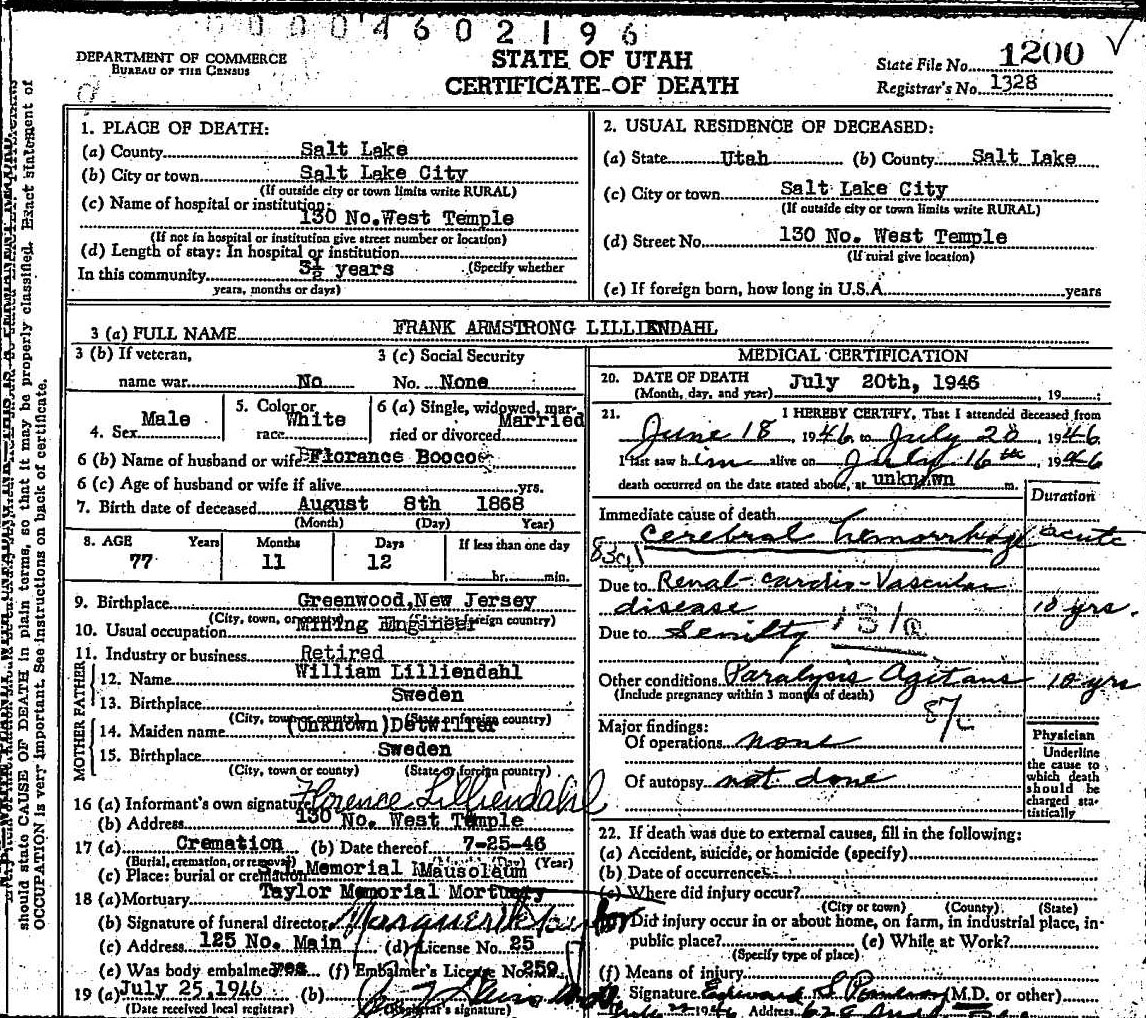 00004602196
DEPARTMENT OF COMMERCE
BUREAU OF THE CENSUS
STATE OF UTAH
CERTIFICATE OF DEATH
State File No. 1200
Registrar's No. 1328
should state CAUSE OF DEATH in plain terms, so that it may be properly classified. Exact statement of
OCCUPATION is very important. See instructions on back of certificate.
1. PLACE OF DEATH:
(a) County Salt Lake
(b) City or town Salt Lake City
(If outside city or town limits write RURAL)
(c) Name of hospital or institution:
130 No.West Temple
(If not in hospital or institution give street number or location)
(d) Length of stay: In hospital or institution
In this community 3½ years (Specify whether
years, months or days)
2. USUAL RESIDENCE OF DECEASED:
(a) State Utah (b) County Salt Lake
(c) City or town Salt Lake City
(If outside city or town limits write RURAL)
(d) Street No. 130 No. West Temple
(If rural give location)
(e) If foreign born, how long in U.S.A. years
3 (a) FULL NAME FRANK ARMSTRONG LILLIENDAHL
3 (b) If veteran,
name war No
3 (c) Social Security
No. None
4. Sex Male
5. Color or
race White
6 (a) Single, widowed, mar-
ried or divorced Married
6 (b) Name of husband or wife Florance Boocoe
6 (c) Age of husband or wife if alive yrs.
7. Birth date of deceased August 8th 1868
(Month) (Day) Year)
8. AGE Years Months Days If less than one day
77 11 12 hr. min.
9. Birthplace Greenwood,New Jersey
(City, town, or county) (State or foreign country)
10. Usual occupation Mining Engineer
11. Industry or business Retired
MOTHER FATHER
12. Name William Lilliendahl
13. Birthplace Sweden
(City, town or county) (State or foreign country)
14. Maiden name (Unknown)Detwiller
15. Birthplace Sweden
(City, town or county) (State or foreign country)
16 (a) Informant's own signature Florence Lilliendahl
(b) Address 130 No. West Temple
17 (a) Cremation (b) Date thereof 7-25-46
(Burial, cremation, or removal) (Day) (Year)
(c) Place: burial or cremation Memorial Mausoleum
18 (a) Mortuary Taylor Memorial Mortuary
(b) Signature of funeral director Marguerite
(c) Address 125 No. Main (d) License No. 25
(e) Was body embalmed yes (f) Embalmer's License No. 259
19 (a) July 25,1946 (b)
(Date received local registrar) (Registrar's signature)
MEDICAL CERTIFICATION
20. DATE OF DEATH July 20th, 1946
(Month, day, and year) , 19 :
21. I HEREBY CERTIFY, That I attended deceased from
June 18, 1946 to July 20, 1946
I last saw him alive on July 16th 1946
death occurred on the date stated above, at unknown m.
Duration
Immediate cause of death
Cerebral hemorrhage acute
83a1
Due to Renal-cardio-Vascular
disease 10 yrs.
Due to Senilty 131a
Other conditions Paralysis Agitans 10 yrs
(Include pregnancy within 3 months of death)
87c
Major findings:
Of operations none
Of autopsy not done
Physician
Underline
the cause to
which death
should be
charged sta-
tistically
22. If death was due to external causes, fill in the following:
(a) Accident, suicide, or homicide (specify)
(b) Date of occurrence
(c) Where did injury occur?
(City or town) (County) (State)
Did injury occur in or about home, on farm, in industrial place, in-
public place? (e) While at Work?
(Specify type of place)
(f) Means of injury
Signature Edward S (M.D. or other)
Address